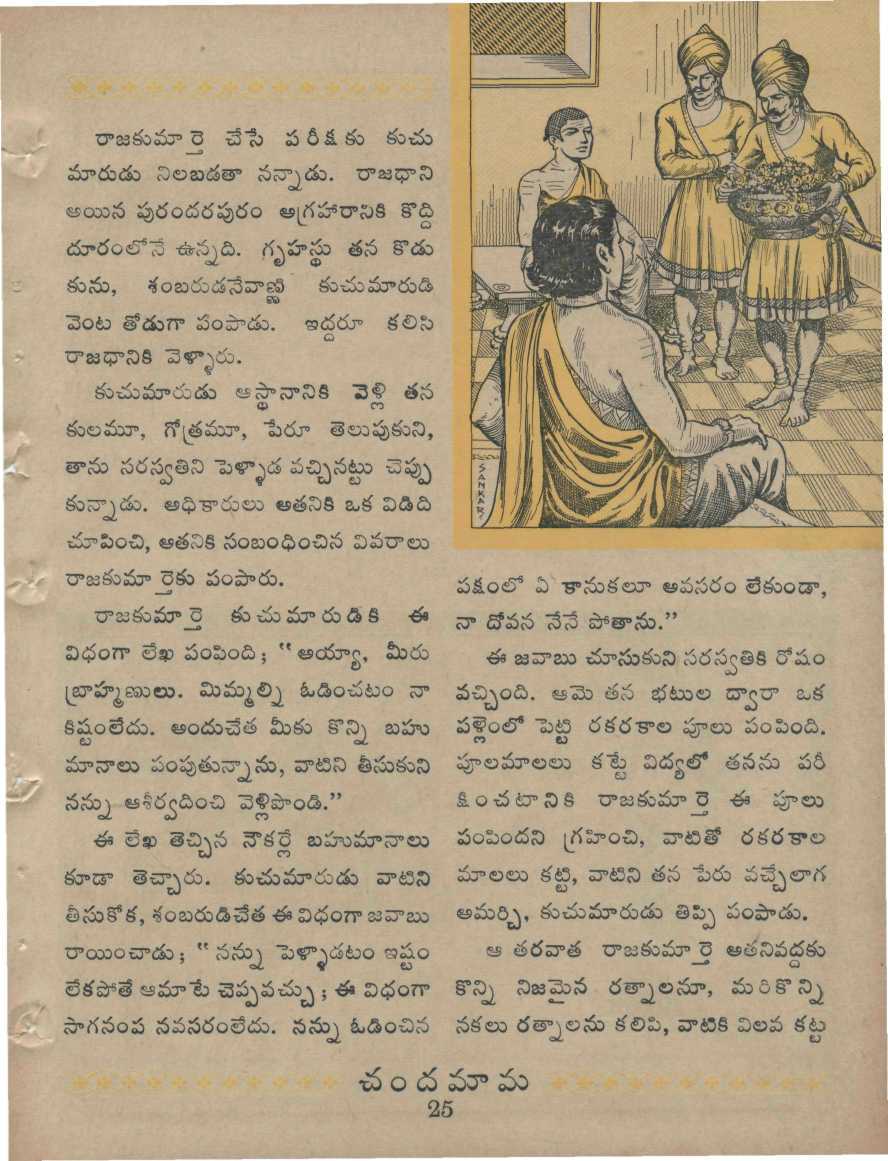 రాజకుమార్తె చేసే పరీక్షకు కుచు
మారుడు నిలబడతా నన్నాడు. రాజధాని
అయిన పురందరపురం అగ్రహారానికి కొద్ది
దూరంలోనే ఉన్నది. గృహస్థు తన కొడు
కును, శంబరుడనేవాణ్ణి కుచుమారుడి
వెంట తోడుగా పంపాడు. ఇద్దరూ కలిసి
రాజధానికి వెళ్ళారు.
కుచుమారుడు ఆస్థానానికి వెళ్లి తన
కులమూ, గోత్రమూ, పేరూ తెలుపుకుని,
తాను సరస్వతిని పెళ్ళాడ వచ్చినట్టు చెప్పు
కున్నాడు. అధికారులు అతనికి ఒక విడిది
చూపించి, అతనికి సంబంధించిన వివరాలు
రాజకుమార్తెకు పంపారు.
రాజకుమార్తె కుచుమారుడికి ఈ
విధంగా లేఖ పంపింది; "అయ్యా, మీరు
బ్రాహ్మణులు. మిమ్మల్ని ఓడించటం నా
కిష్టంలేదు. అందుచేత మీకు కొన్ని బహు
మానాలు పంపుతున్నాను, వాటిని తీసుకుని
నన్ను ఆశీర్వదించి వెళ్లిపొండి."
ఈ లేఖ తెచ్చిన నౌకర్లే బహుమానాలు
కూడా తెచ్చారు. కుచుమారుడు వాటిని
తీసుకోక, శంబరుడిచేత ఈ విధంగా జవాబు
రాయించాడు; "నన్ను పెళ్ళాడటం ఇష్టం
లేకపోతే ఆమాటే చెప్పవచ్చు; ఈ విధంగా
సాగనంప నవసరంలేదు. నన్ను ఓడించిన
SANKAR
పక్షంలో ఏ కానుకలూ అవసరం లేకుండా,
నా దోవన నేనే పోతాను."
ఈ జవాబు చూసుకుని సరస్వతికి రోషం
వచ్చింది. ఆమె తన భటుల ద్వారా ఒక
పళ్లెంలో పెట్టి రకరకాల పూలు పంపింది.
పూలమాలలు కట్టే విద్యలో తనను పరీ
క్షించటానికి రాజకుమార్తె ఈ పూలు
పంపిందని గ్రహించి, వాటితో రకరకాల
మాలలు కట్టి, వాటిని తన పేరు వచ్చేలాగ
అమర్చి, కుచుమారుడు తిప్పి పంపాడు.
ఆ తరవాత రాజకుమార్తె అతనివద్దకు
కొన్ని నిజమైన రత్నాలనూ, మరికొన్ని
నకలు రత్నాలను కలిపి, వాటికి విలవ కట్ట
చందమామ
25